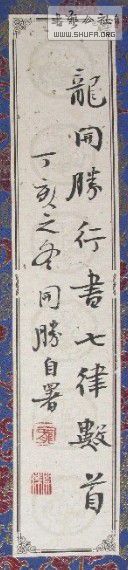 書藝公社
www.SHUFA.ORG
龍開勝行書七律數首
丁亥之冬開勝自署